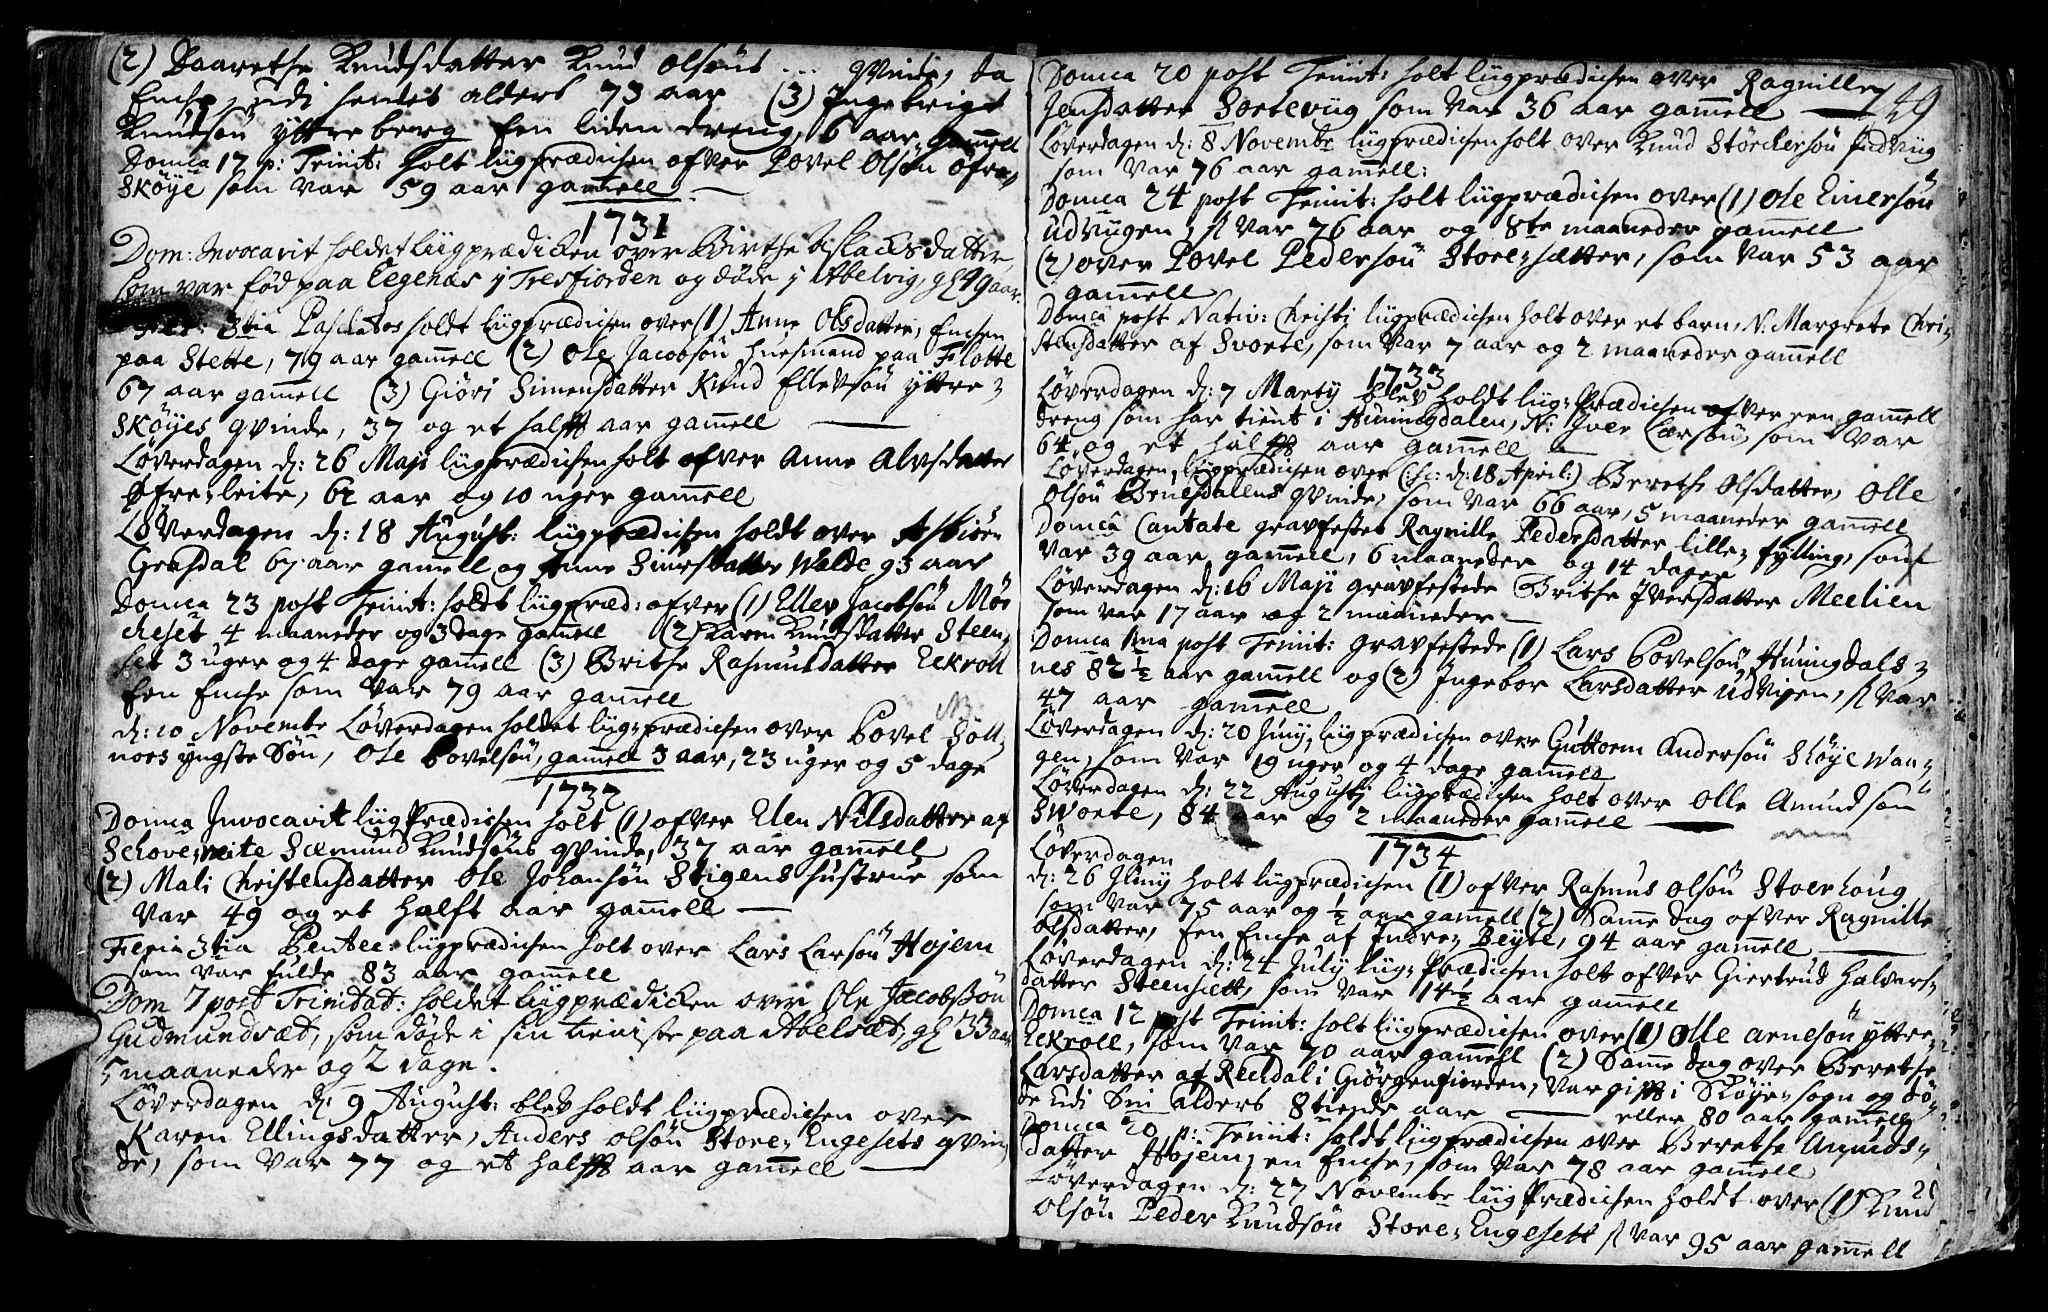 (2) Daarethe Knudsdatter Knud Olsøns ... qvinde, da
Enche, udi hendes alders 73 aar (3) Ingebrigt
Knudsøn Ytterberg Een liden dreng, 6 aar gam̄ell
Domca 17 p: Trinit: holt liigprædicken ofver Povel Olsøn Øfre-
Skøye som var 59 aar gam̄ell
1731
Dom: Invocavit holdet Liigprædicken over Birthe Aslachsdatter,
som var fød paa Eegenæs i Tresfiorden og døde i Abelvig, gl 49 aar.
Fer: 3tia Paschatos holdt liigprædicken over (1) Anne Olsdatter, Encken
paa Stette, 79 aar gam̄ell (2) Ole Jacobsøn huusmand paa Flotte
67 aar gam̄ell (3) Giøri Simensdatter Knud Ellevsøn Yttre-
Skøyes qvinde, 37 og et halft aar gam̄ell
Løverdagen d: 26 Maji liigprædicken holt ofver Anne Alvsdatter
Øfre-leite, 62 aar og 10 uger gam̄ell
Løverdagen d: 18 August: liigprædicken holdt over Asbiørn
Grasdal 67 aar gam̄ell og Anne Siversdatter Walde 93 aar
Domca 23 post Trinit: holdt liigpræd: ofver (1) Ellev Jacobsøn Mør
cheset 4 maaneder og 3 dage gam̄ell (2) Karen Knudsdatter Steen-
set 3 uger og 4 dage gam̄ell (3) Brithe Rasmusdatter Ekroll
Een Enche som var 79 aar gam̄ell
d: 10 Novembr Løverdagen holdet liig-prædicken over Povel Solt
nors yngste Søn, Ole Povelsøn, gam̄ell 3 aar, 23 uger og 5 dage
1732
Domca Invocavit liigPrædicken holt (1) ofver Elen Nilsdatter af
Schoveneite Sæmund Knudsøns qvinde, 37 aar gam̄ell
(2) Mali Christensdatter Ole Johansøn Stigens hustrue som
var 49 og et halft aar gam̄ell
Feria 3tia Pentec: liigprædicken holt over Lars Larsøn Højem
som var fulde 83 aar gam̄ell
Dom 7 post Trinitat: holdet Liigprædicken over Ole Jacobssøn
Gudmundsæt, som døde i sin tieniste paa Abelsæt, gl 33 aar
5 maaneder og 2 dage.
Løverdagen d: 9 August: blev holdt liigprædicken over
Karen Ellingsdatter, Anders Olsøn Store-Engesets qvin
de, som var 77 og et halft aar gam̄ell
149
Domca 20 post Trinit: holt liigprædicken over Ragnille
Jensdatter Sortevüg som var 36 aar gam̄ell
Løverdagen d: 8 Novembr liigprædicken holt over Knud Størchersøn Indvüg
som var 76 aar gam̄ell:
Domca 24 post Trinit: holt liigprædicken over (1) Ole Einersøn
Udvügen, s var 76 aar og 8te maaneder gam̄ell
(2) over Povel Pedersøn Store-sætter, som var 53 aar
gam̄ell
Domca post Nativ: Christi liigprædicken holt over et barn, N: Margrete Chri-
stensdatter af Svorte, som var 7 aar og 2 maaneder gam̄ell
1733
Løverdagen d: 7 Martij blev holdt liig-Prædicken ofver een gam̄ell
dreng som har tient i Huningdalen, N: Iver Larsøn, som var
64 og et halft aar gam̄ell
Løverdagen, liigprædicken over (:sc: d: 18 April:) Berethe Olsdatter, Olle
Olsøn Bruesdalens qvinde, som var 66 aar, 5 maaneder gam̄ell
Domca Cantate gravfestet Ragnille Pedersdatter lille-fylling, som
var 39 aar gam̄ell, 6 maaneder og 14 dager
Løverdagen d: 16 Maji gravfestede Brithe Iversdatter Meelien
som var 17 aar og 2 maaneder
Domca 1ma post Trinit: gravfestede (1) Lars Povelsøn Huningdals-
nes 82 ½ aar gam̄ell og (2) Ingebor Larsdatter Udvigen, s var
47 aar gam̄ell
Løverdagen d: 20 Junij, liigprædicken over Guttorm Andersøn Skøye Wan-
gen, som var 19 uger og 4 dage gam̄ell
Løverdagen d: 22 Augustj liigprædicken holt over Olle Amundsøn
Sworte, 84 aar og 2 maaneder gam̄ell
1734
Løverdagen
d: 26 Junij holt liigprædicken (1) ofver Rasmus Olsøn Stoerhoug
som var 75 aar og ½ aar gam̄ell (2) Sam̄e dag ofver Ragnille
Olsdatter, Een Enche af Indre-Beyte, 94 aar gam̄ell
Løverdagen d: 24 July liig-Prædicken holt ofver Giertrud Halvors-
datter Steensett, som var 14 ½ aar gam̄ell
Domca 12 post Trinit: holt liigprædicken over (1) Olle Arnesøn Yttre-
Ekroll, som var 70 aar gam̄ell (2) Sam̄e dag over Berethe
Larsdatter af Reedal i Giørgenfiorden, var gift i Skøye-sogn og dø-
de udi Sin alders 8tiende aar eller 80 aar gam̄ell
Domca 20 p: Trinit: holdt liigprædicken over Berethe Amunds-
datter Højem, en Enche, som var 78 aar gam̄ell
Løverdagen d: 27 Novembr liigPrædicken holdt over (1) Knud
Olsøn Peder Knudsøn Store-Engesett s var 95 aar gam̄ell